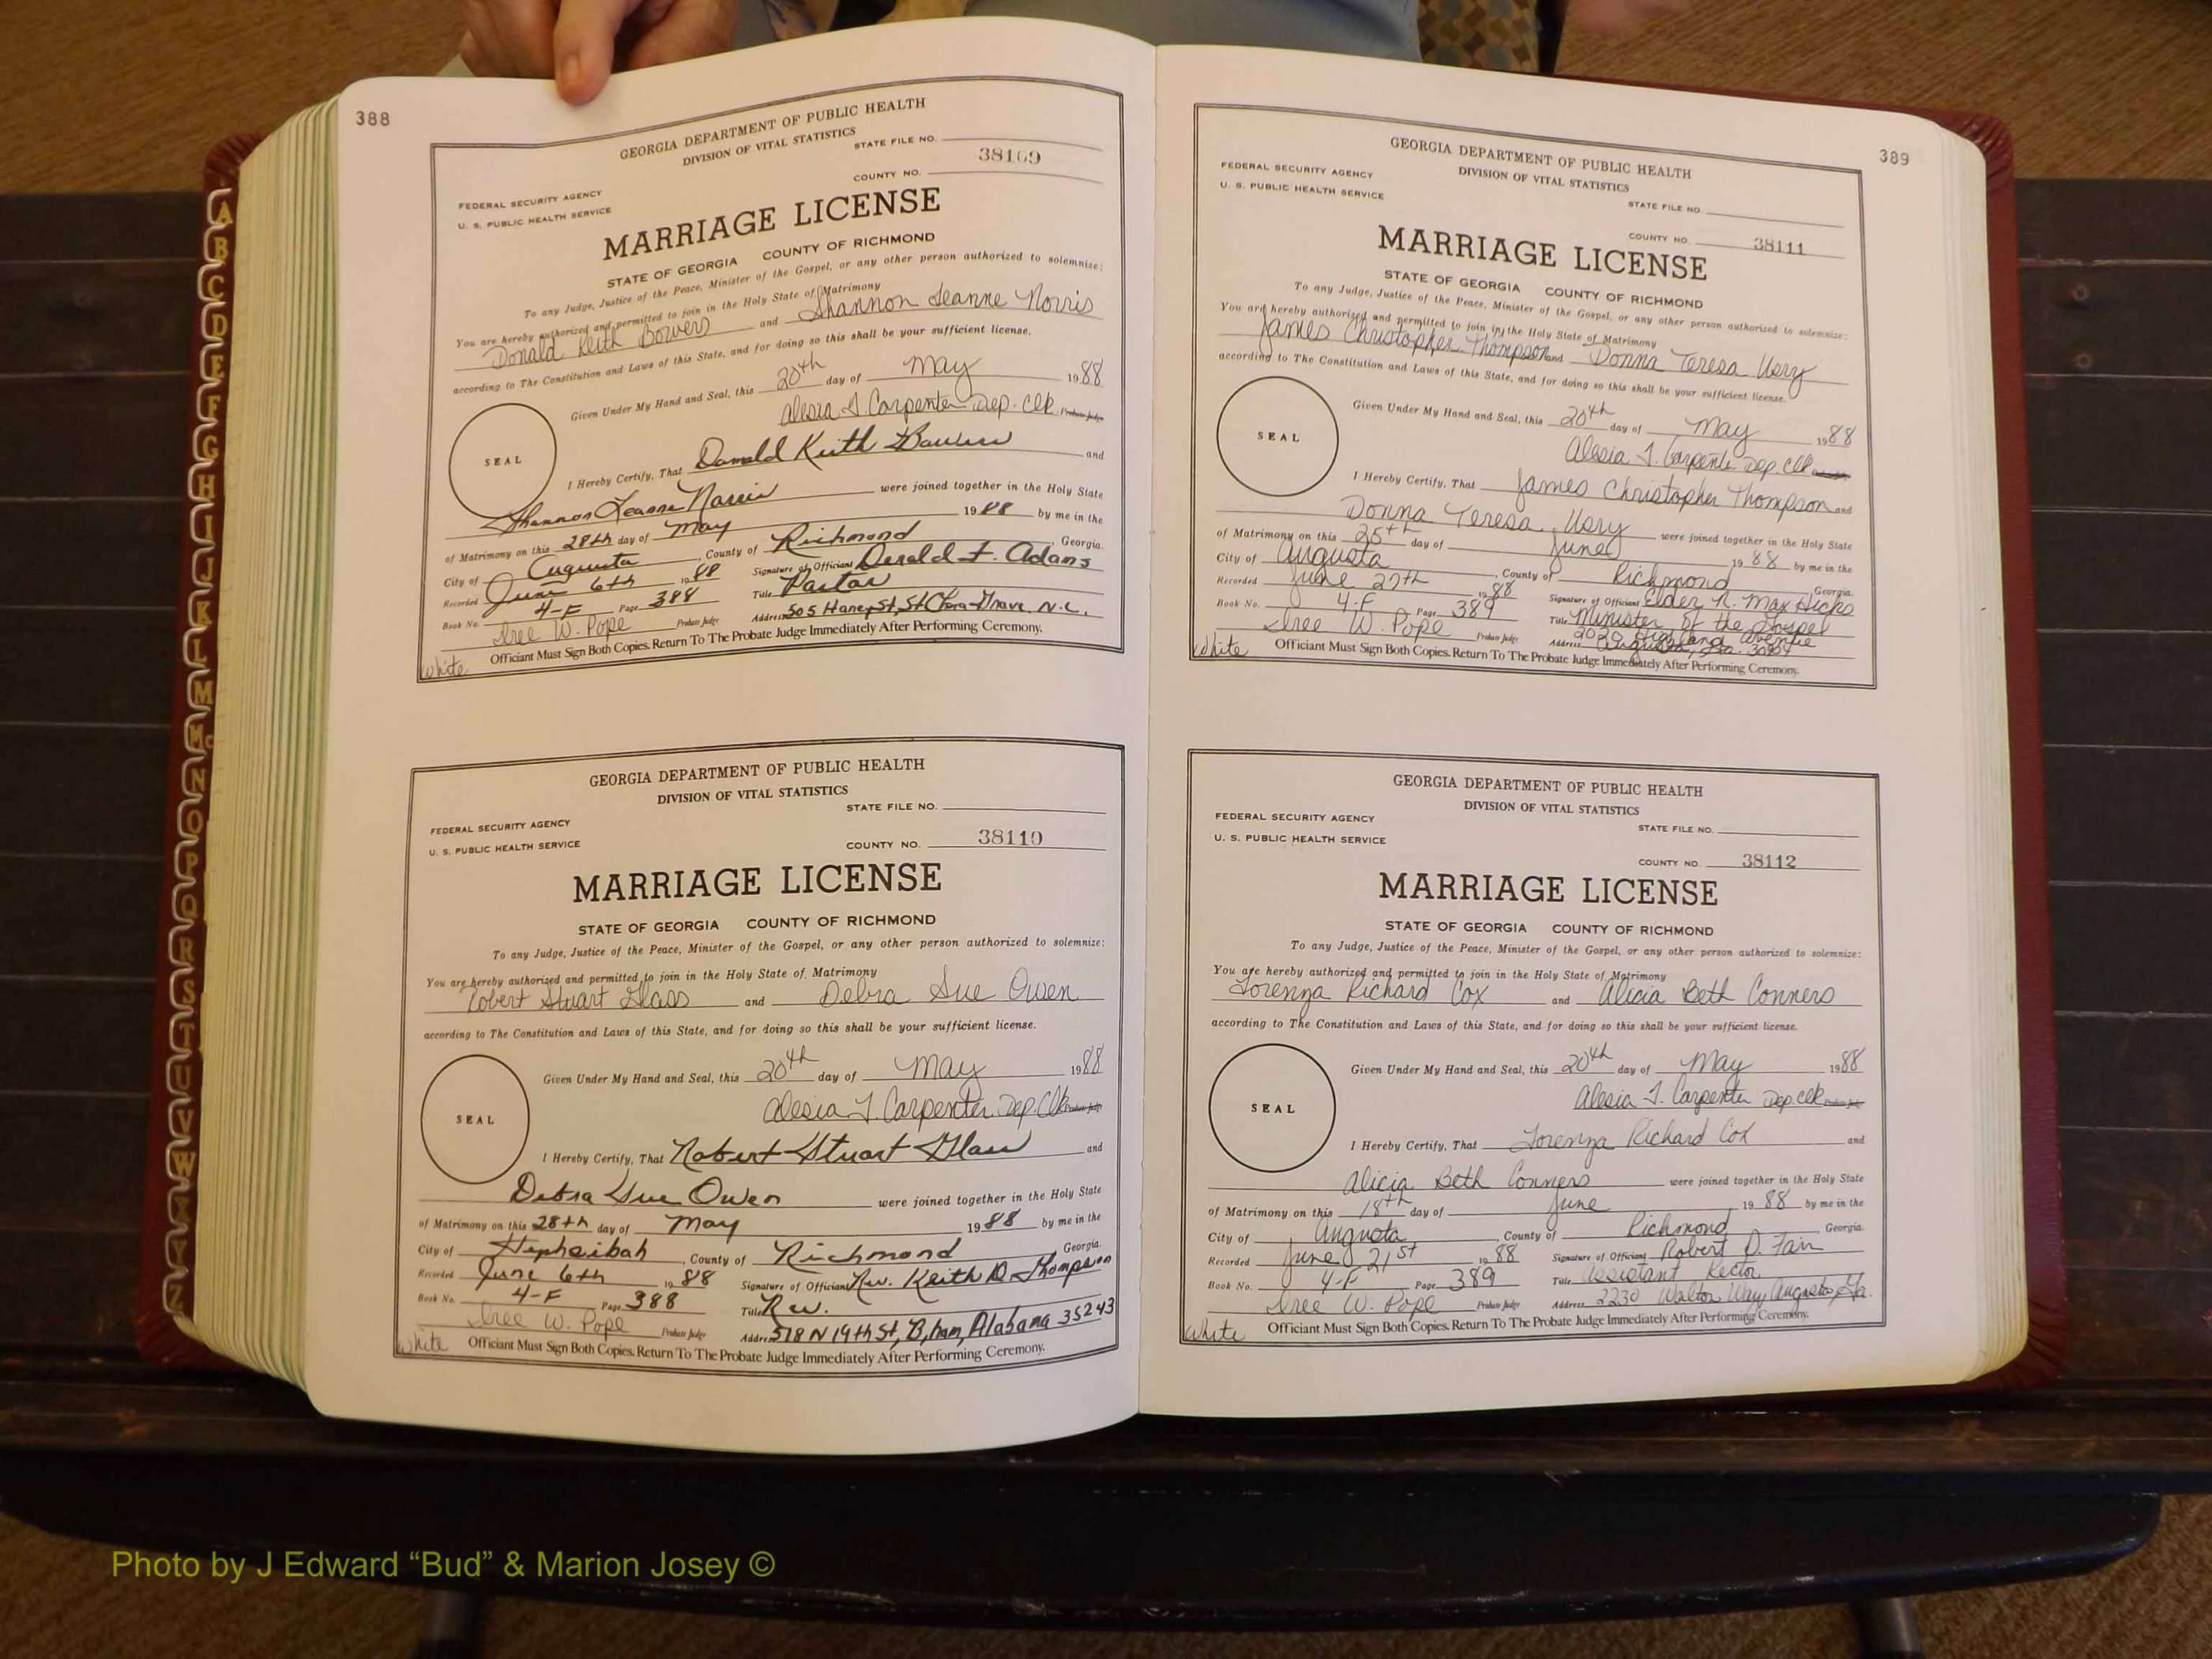 388
GEORGIA DEPARTMENT OF PUBLIC HEALTH
DIVISION OF VITAL STATISTICS
STATE FILE NO.
38109
COUNTY NO.
FEDERAL SECURITY AGENCY
U. S. PUBLIC HEALTH SERVICE
MARRIAGE LICENSE
STATE OF GEORGIA COUNTY OF RICHMOND
To any Judge, Justice of the Peace, Minister of the Gospel, or any other person authorized to solemnize:
You are hereby authorized and permitted to join in the Holy State of Matrimony
Donald Keith Bowers and Shannon Leanne Norris
according to The Constitution and Laws of this State, and for doing so this shall be your sufficient license.
Given Under My Hand and Seal, this 20th day of May 1988
Alesia J. Carpenter Dep. Clk. Probate Judge
SEAL
I Hereby Certify, That Donald Keith Bowers and
Shannon Leanne Norris were joined together in the Holy State
of Matrimony on this 28th day of May 1988 by me in the
City of Augusta, County of Richmond, Georgia.
Recorded June 6th 1988 Signature of Officiant Derald F. Adams
Book No. 4-F Page 388 Title Pastor
Iree W. Pope Probate Judge Address 505 Haney St, N.C.
Officiant Must Sign Both Copies. Return To The Probate Judge Immediately After Performing Ceremony.
White
GEORGIA DEPARTMENT OF PUBLIC HEALTH
DIVISION OF VITAL STATISTICS
STATE FILE NO.
FEDERAL SECURITY AGENCY
U. S. PUBLIC HEALTH SERVICE
COUNTY NO. 38110
MARRIAGE LICENSE
STATE OF GEORGIA COUNTY OF RICHMOND
To any Judge, Justice of the Peace, Minister of the Gospel, or any other person authorized to solemnize:
You are hereby authorized and permitted to join in the Holy State of Matrimony
Robert Stuart Glass and Debra Sue Owen
according to The Constitution and Laws of this State, and for doing so this shall be your sufficient license.
Given Under My Hand and Seal, this 20th day of May 1988
Alesia J. Carpenter Dep. Clk Probate Judge
SEAL
I Hereby Certify, That Robert Stuart Glass and
Debra Sue Owen were joined together in the Holy State
of Matrimony on this 28th day of May 1988 by me in the
City of Hephzibah, County of Richmond Georgia.
Recorded June 6th 1988 Signature of Officiant Rev. Keith D. Thompson
Book No. 4-F Page 388 Title Rev.
Iree W. Pope Probate Judge Address 518 N 19th St, B,ham, Alabama 35243
Officiant Must Sign Both Copies. Return To The Probate Judge Immediately After Performing Ceremony.
White
389
GEORGIA DEPARTMENT OF PUBLIC HEALTH
DIVISION OF VITAL STATISTICS
FEDERAL SECURITY AGENCY
U. S. PUBLIC HEALTH SERVICE
STATE FILE NO.
COUNTY NO. 38111
MARRIAGE LICENSE
STATE OF GEORGIA COUNTY OF RICHMOND
To any Judge, Justice of the Peace, Minister of the Gospel, or any other person authorized to solemnize:
You are hereby authorized and permitted to join in the Holy State of Matrimony
James Christopher Thompson and Donna Teresa Usry
according to The Constitution and Laws of this State, and for doing so this shall be your sufficient license.
Given Under My Hand and Seal, this 20th day of May 1988
Alesia J. Carpenter Dep. Clk
SEAL
I Hereby Certify, That James Christopher Thompson and
Donna Teresa Usry were joined together in the Holy State
of Matrimony on this 25th day of June 1988 by me in the
City of Augusta, County of Richmond Georgia.
Recorded June 27th 1988 Signature of Officiant Elder R. Max Hicks
Book No. 4-F Page 389 Title Minister of the Gospel
Iree W. Pope Probate Judge Address 2020 Highland Avenue
Augusta, Ga. 30904
Officiant Must Sign Both Copies. Return To The Probate Judge Immediately After Performing Ceremony.
White
GEORGIA DEPARTMENT OF PUBLIC HEALTH
DIVISION OF VITAL STATISTICS
FEDERAL SECURITY AGENCY
U. S. PUBLIC HEALTH SERVICE
STATE FILE NO.
COUNTY NO. 38112
MARRIAGE LICENSE
STATE OF GEORGIA COUNTY OF RICHMOND
To any Judge, Justice of the Peace, Minister of the Gospel, or any other person authorized to solemnize:
You are hereby authorized and permitted to join in the Holy State of Matrimony
Lorenza Richard Cox and Alicia Beth Conners
according to The Constitution and Laws of this State, and for doing so this shall be your sufficient license.
Given Under My Hand and Seal, this 20th day of May 1988
Alesia J. Carpenter Dep. Clk
SEAL
I Hereby Certify, That Lorenza Richard Cox and
Alicia Beth Conners were joined together in the Holy State
of Matrimony on this 18th day of June, 1988 by me in the
City of Augusta, County of Richmond, Georgia.
Recorded June 21st 1988 Signature of Officiant Robert D. Fain
Book No. 4-F Page 389 Title Assistant Rector
Iree W. Pope Probate Judge Address 2230 Walton Way, Augusta, Ga.
Officiant Must Sign Both Copies. Return To The Probate Judge Immediately After Performing Ceremony.
White
A
B
C
D
E
F
G
H
I
J
K
L
M
Mc
N
O
P
Q
R
S
T
U
V
W
X
Y
Z
Photo by J Edward “Bud” & Marion Josey ©